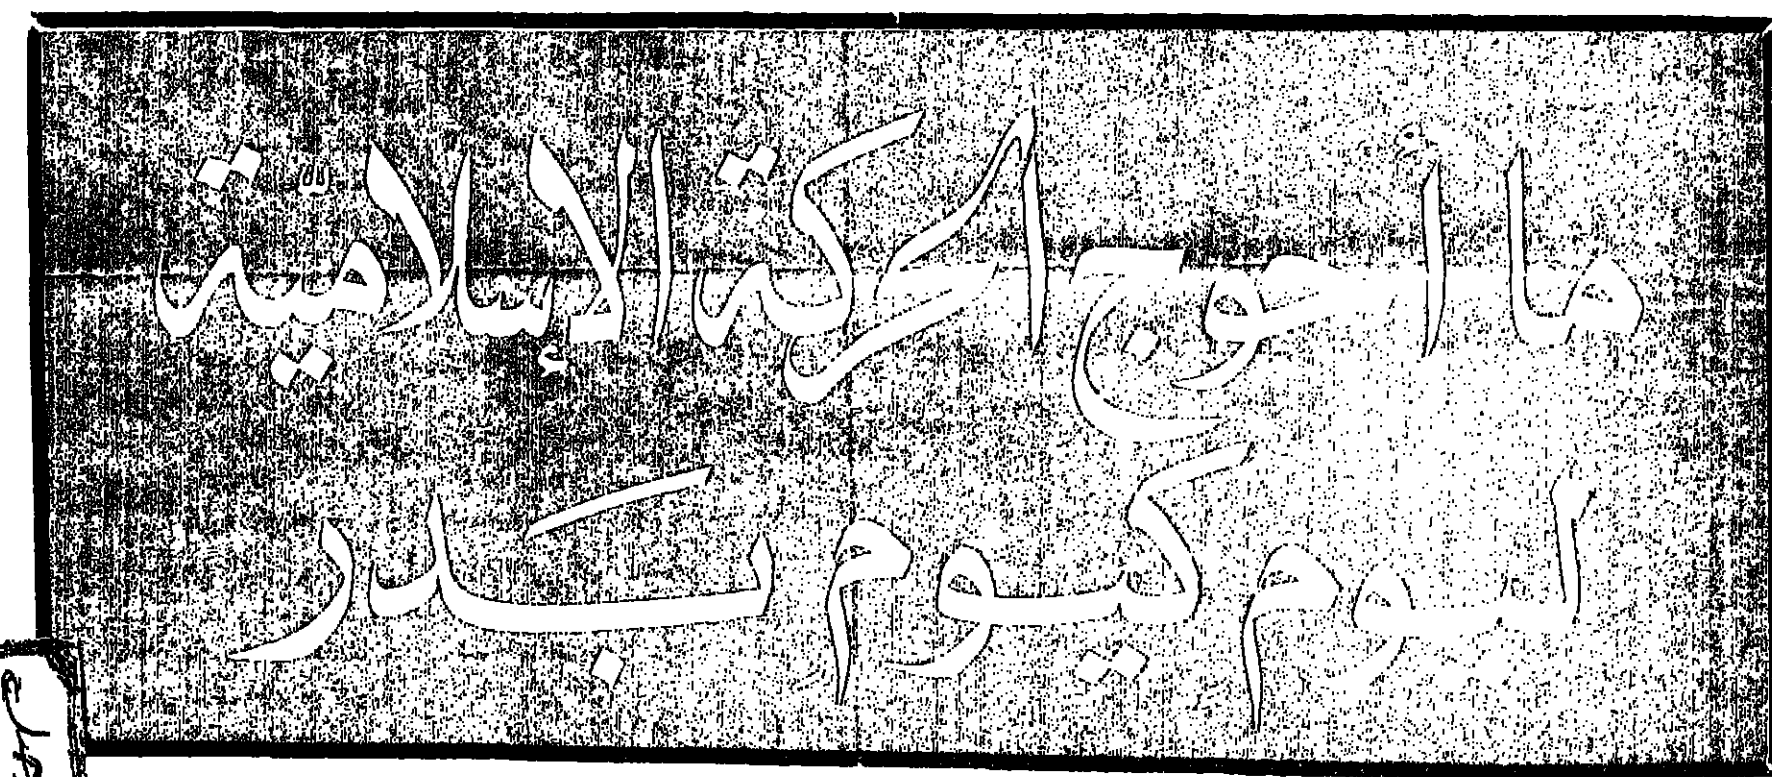 ما أحوج الحركة الإسلاميّة
ليوم كيوم بدر